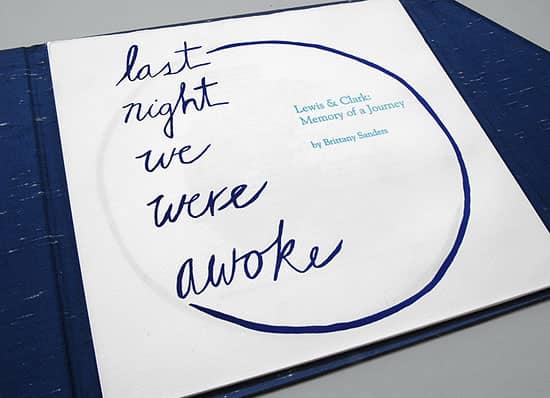 last
night
we
were
awoke
Lewis & Clark:
Memory of a Journey
by Brittany Sanders